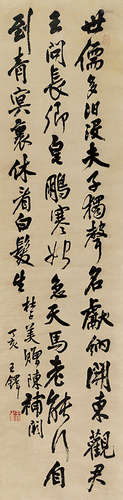 世儒多汩没夫子獨聲名獻納開東觀君
王問長卿皂鵰寒始急天馬老能行自
到青冥裏休看白髮生杜子美贈陳補闕
丁亥王鐸